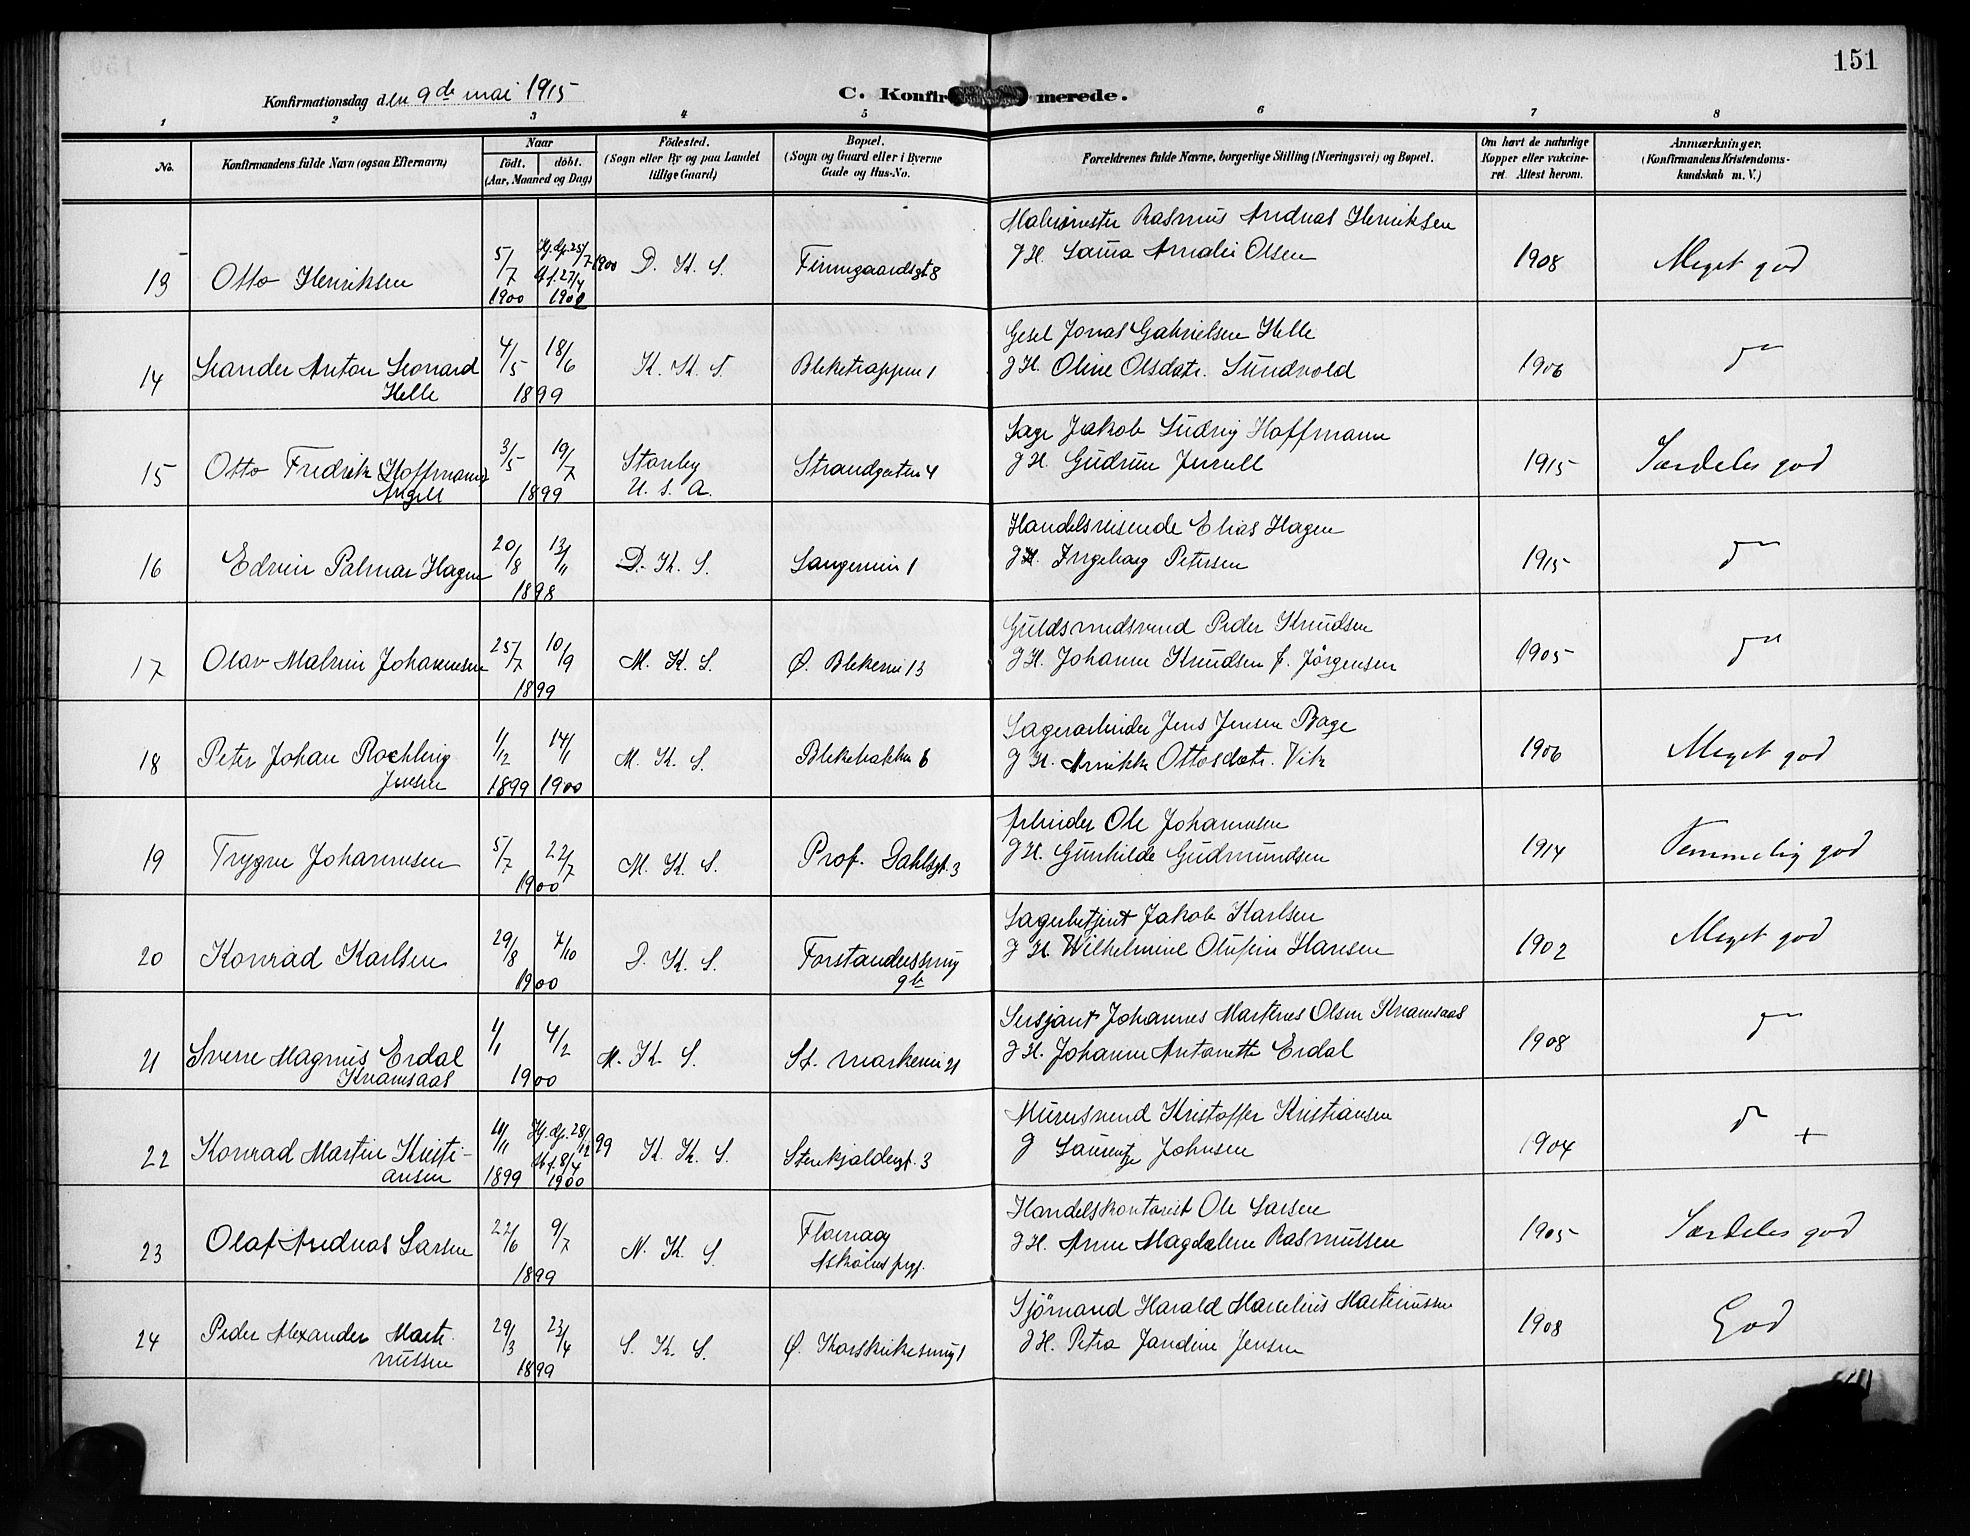 151
Konfirmationsdag den 9de mai 1915
C. Konfirmerede.
1 2 3 4 5 6 7 8
No. Konfirmandens fulde Navn (ogsaa Efternavn) Naar født. døbt. (Aar, Maaned og Dag) Fødested. (Sogn eller By og paa Landet tillige Gaard) Bopæl. (Sogn og Gaard eller i Byerne Gade og Hus-No. Forældrenes fulde Navne, borgerlige Stilling (Næringsvei) og Bopæl. Om havt de naturlige Kopper eller vaksineret. Attest herom. Anmærkninger. (Konfirmandens Kristendomskundskab m. V.)
13 Otto Henriksen 5/7 1900 Hj. dp. 25/7 1900 St. f. 27/4 1902 D. K. S. Finnegaardsgt 8 Malermester Rasmus Andreas Henriksen
O H. Laura Amalie Olsen 1908 Meget god
14 Leander Anton Leonard Helle 4/5 18/6 1899 K. K. S. Bleketrappen 1 Gesel Jonas Gabrielsen Helle
O H. Oline Olsdatr. Sundvold 1906 do
15 Otto Fredrik Hoffmann Angell 3/5 19/7 1899 Stanley U. S. A. Strandgaten 4 Sagf Jakob Ludvig Hoffmann
O H. Gudrun 1915 Særdeles god
16 Edvin Palmar Hagen 20/8 13/11 1898 D. K. S. Langevei 1 Handelsreisende Elias Hagen
O H. Ingeborg Petersen 1915 do
17 Olav Malvin Johannesen 25/7 10/9 1899 M. K. S. Ø. Blekevei 13 Guldsmedsvend Peder Knudsen
O H. Johanne Knudsen f. Jörgensen 1905 do
18 Peter Johan Rochling Jensen 1/12 1899 14/1 1900 M. K. S. Blekebakken 6 Lagerarbeider Jens Jensen Bage
O H. Annikke Ottosdatr. Vik 1906 Meget god
19 Trygve Johannesen 5/7 22/7 1900 M. K. S. Prof. Dahlsgt. 3 Arbeider Ole Johannesen
O H. Gunhilde Gudmundsen 1914 Temmelig god
20 Konrad Karlsen 29/8 7/10 1900 D. K. S. Forstandersmug 9b Lagerbetjent Jakob Karlsen
O H. Wilhelmine Olufine Hansen 1902 Meget god
21 Sverre Magnus Erdal Knamsaas 1/1 4/2 1900 M. K. S. St. markevei 21 Sersjant Johannes Martines Olsen Knamsaas
O H. Johanne Antonette Erdal 1908 do
22 Konrad Martin Kristiansen 11/11 1899 Hj. dp. 28/12 99 St. f. 8/4 1900 K. K. S. Stenkjeldergt. 3 Murersvend Kristoffer Kristiansen
O Laurentze Johnsen 1904 do +
23 Olaf Andreas Larsen 22/6 9/7 1899 N. K. S. Florvaag Askøens prgj. Handelskontorist Ole Larsen
O H. Anne Magdalene Rasmussen 1905 Særdeles god
24 Peder Alexander Martinussen 29/3 23/4 1899 S. K. S. Ø. Korskirkesmug 1 Sjömand Harald Marcelius Martinussen
O H. Petra Jandine Jensen 1908 God